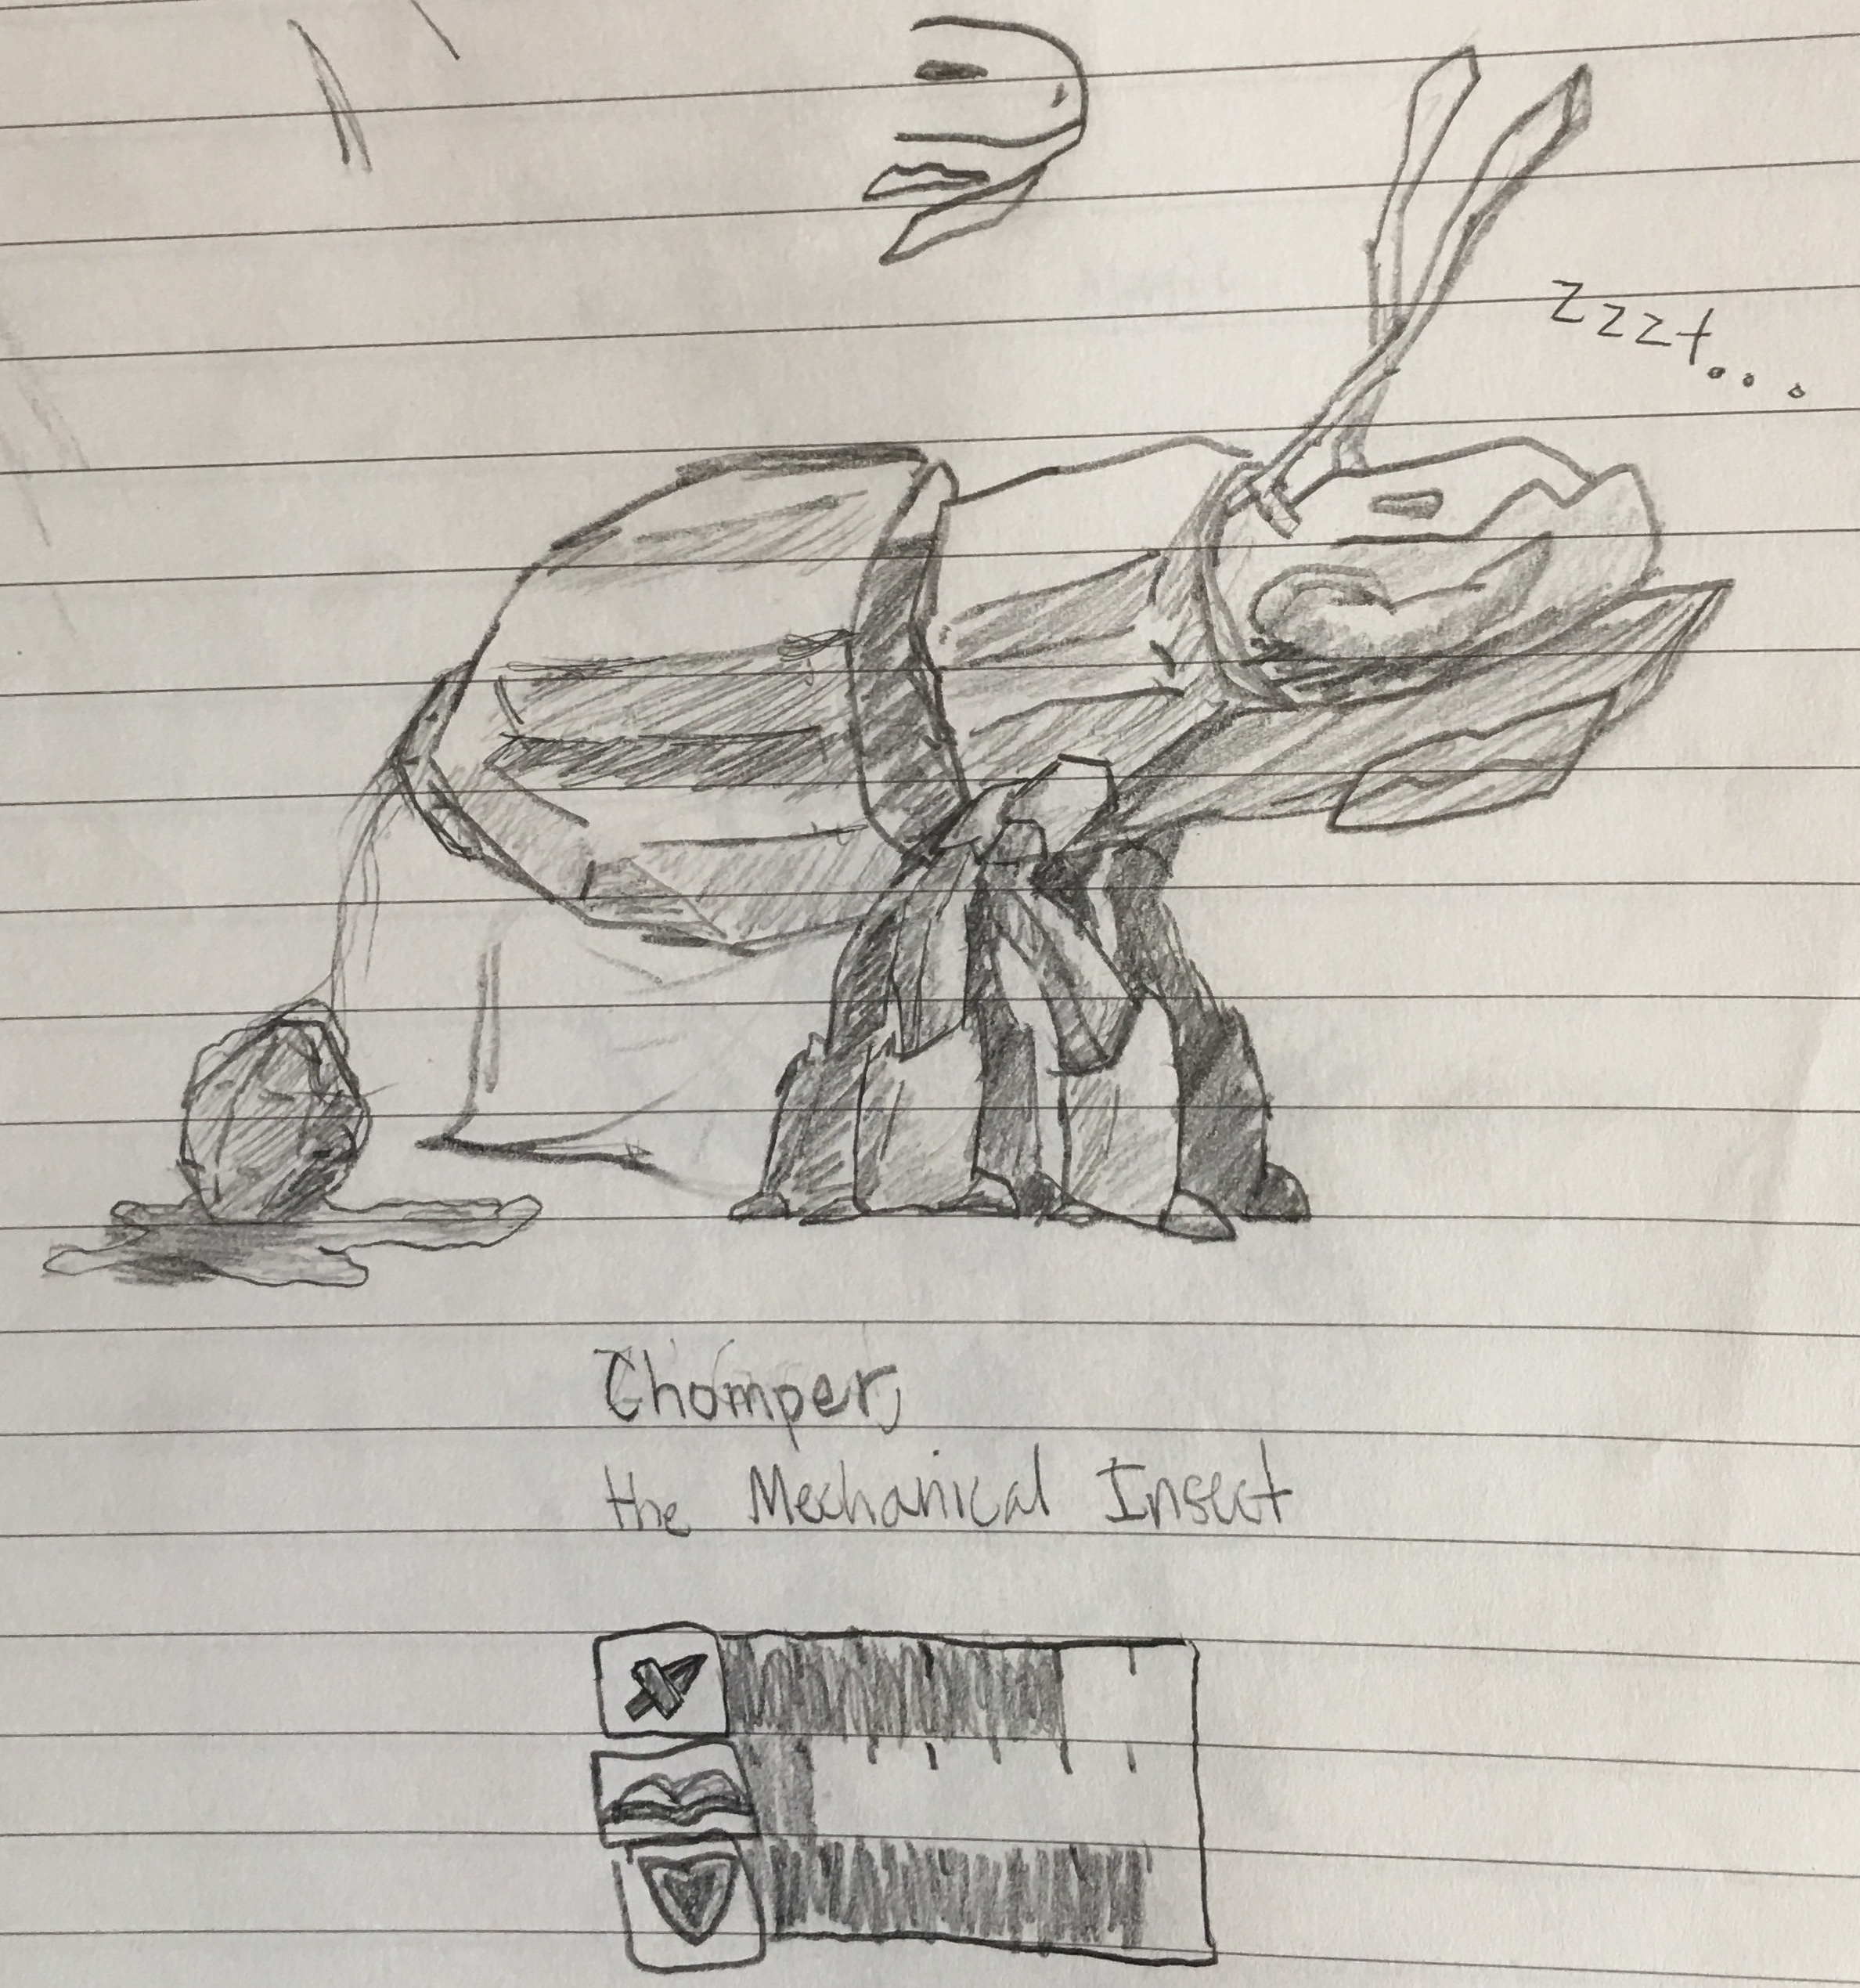 Zzzt...
Chomper,
the Mechanical Insect